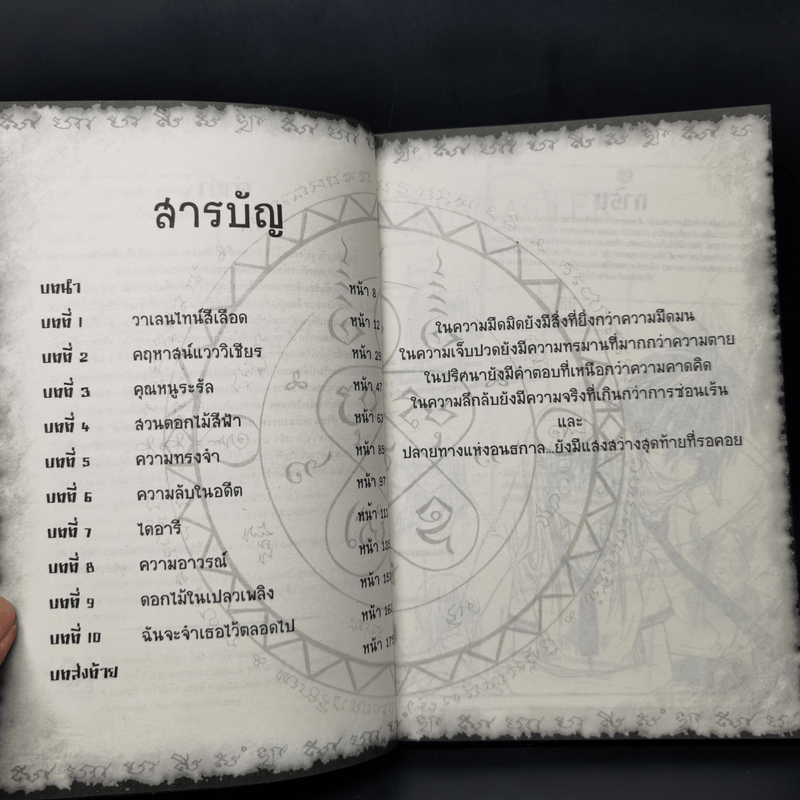 สารบัญ
บทนำ หน้า 8
บทที่ 1 วาเลนไทน์สีเลือด หน้า 12
บทที่ 2 คฤหาสน์แวววิเชียร หน้า 29
บทที่ 3 คุณหนูระรัล หน้า 47
บทที่ 4 สวนดอกไม้สีฟ้า หน้า 60
บทที่ 5 ความทรงจำ หน้า 85
บทที่ 6 ความลับในอดีต หน้า 97
บทที่ 7 ไดอารี่ หน้า
บทที่ 8 ความอาวรณ์ หน้า
บทที่ 9 ดอกไม้ในเปลวเพลิง หน้า
บทที่ 10 ฉันจะจำเธอไว้ตลอดไป หน้า
บทส่งท้าย หน้า
ในความมืดมิดยังมีสิ่งที่ยิ่งกว่าความมืดมน
ในความเจ็บปวดยังมีความทรมานที่มากกว่าความตาย
ในปริศนายังมีคำตอบที่เหนือกว่าความคาดคิด
ในความลึกลับยังมีความจริงที่เกินกว่าการซ่อนเร้น
และ
ปลายทางแห่งอนธกาล...ยังมีแสงสว่างสุดท้ายที่รอคอย